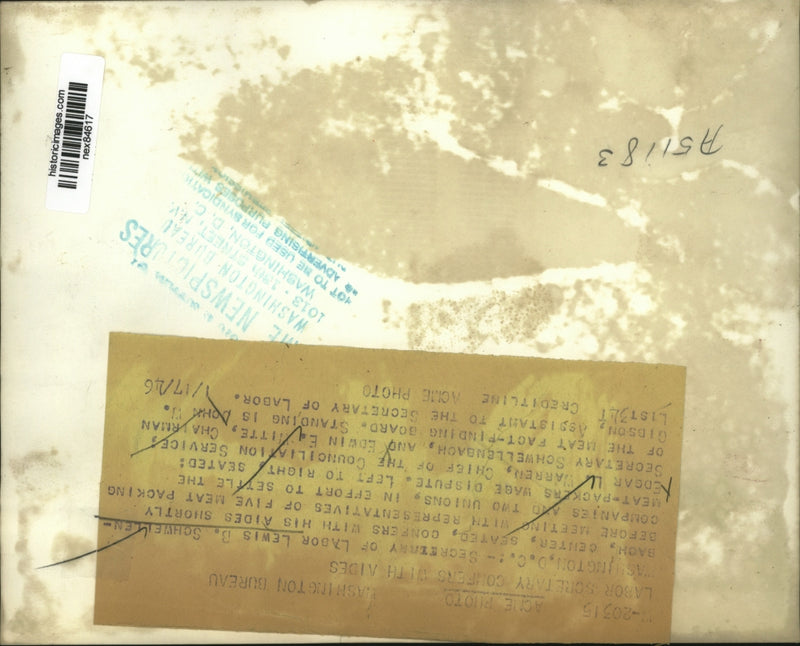 historicimages.com
nex84617
A51183
NEWSPICTURES
WASHINGTON BUREAU
1013 - 13TH STREET, N.W.
WASHINGTON, D. C.
NOT TO BE USED FOR
ADVERTISING PURPOSES
-20315 ACME PHOTO WASHINGTON BUREAU
LABOR SCRETARY CONFERS WITH AIDES
WASHINGTON, D.C.:-- SECRETARY OF LABOR LEWIS B. SCHWELLEN-
BACH, CENTER, SEATED, CONFERS WITH HIS AIDES SHORTLY
BEFORE MEETING WITH REPRESENTATIVES OF FIVE MEAT PACKING
COMPANIES AND TWO UNIONS, IN EFFORT TO SETTLE THE
MEAT-PACKERS WAGE DISPUTE. LEFT TO RIGHT, SEATED:
EDGAR L. WARREN, CHIEF OF THE COUNCILIATION SERVICE;
SECRETARY SCHWELLENBACH, AND, EDWIN E. WITTE, CHAIRMAN
OF THE MEAT FACT-FINDING BOARD. STANDING IS JOHN W.
GIBSON, ASSISTANT TO THE SECRETARY OF LABOR.
CREDITLINE ACME PHOTO 1/17/46